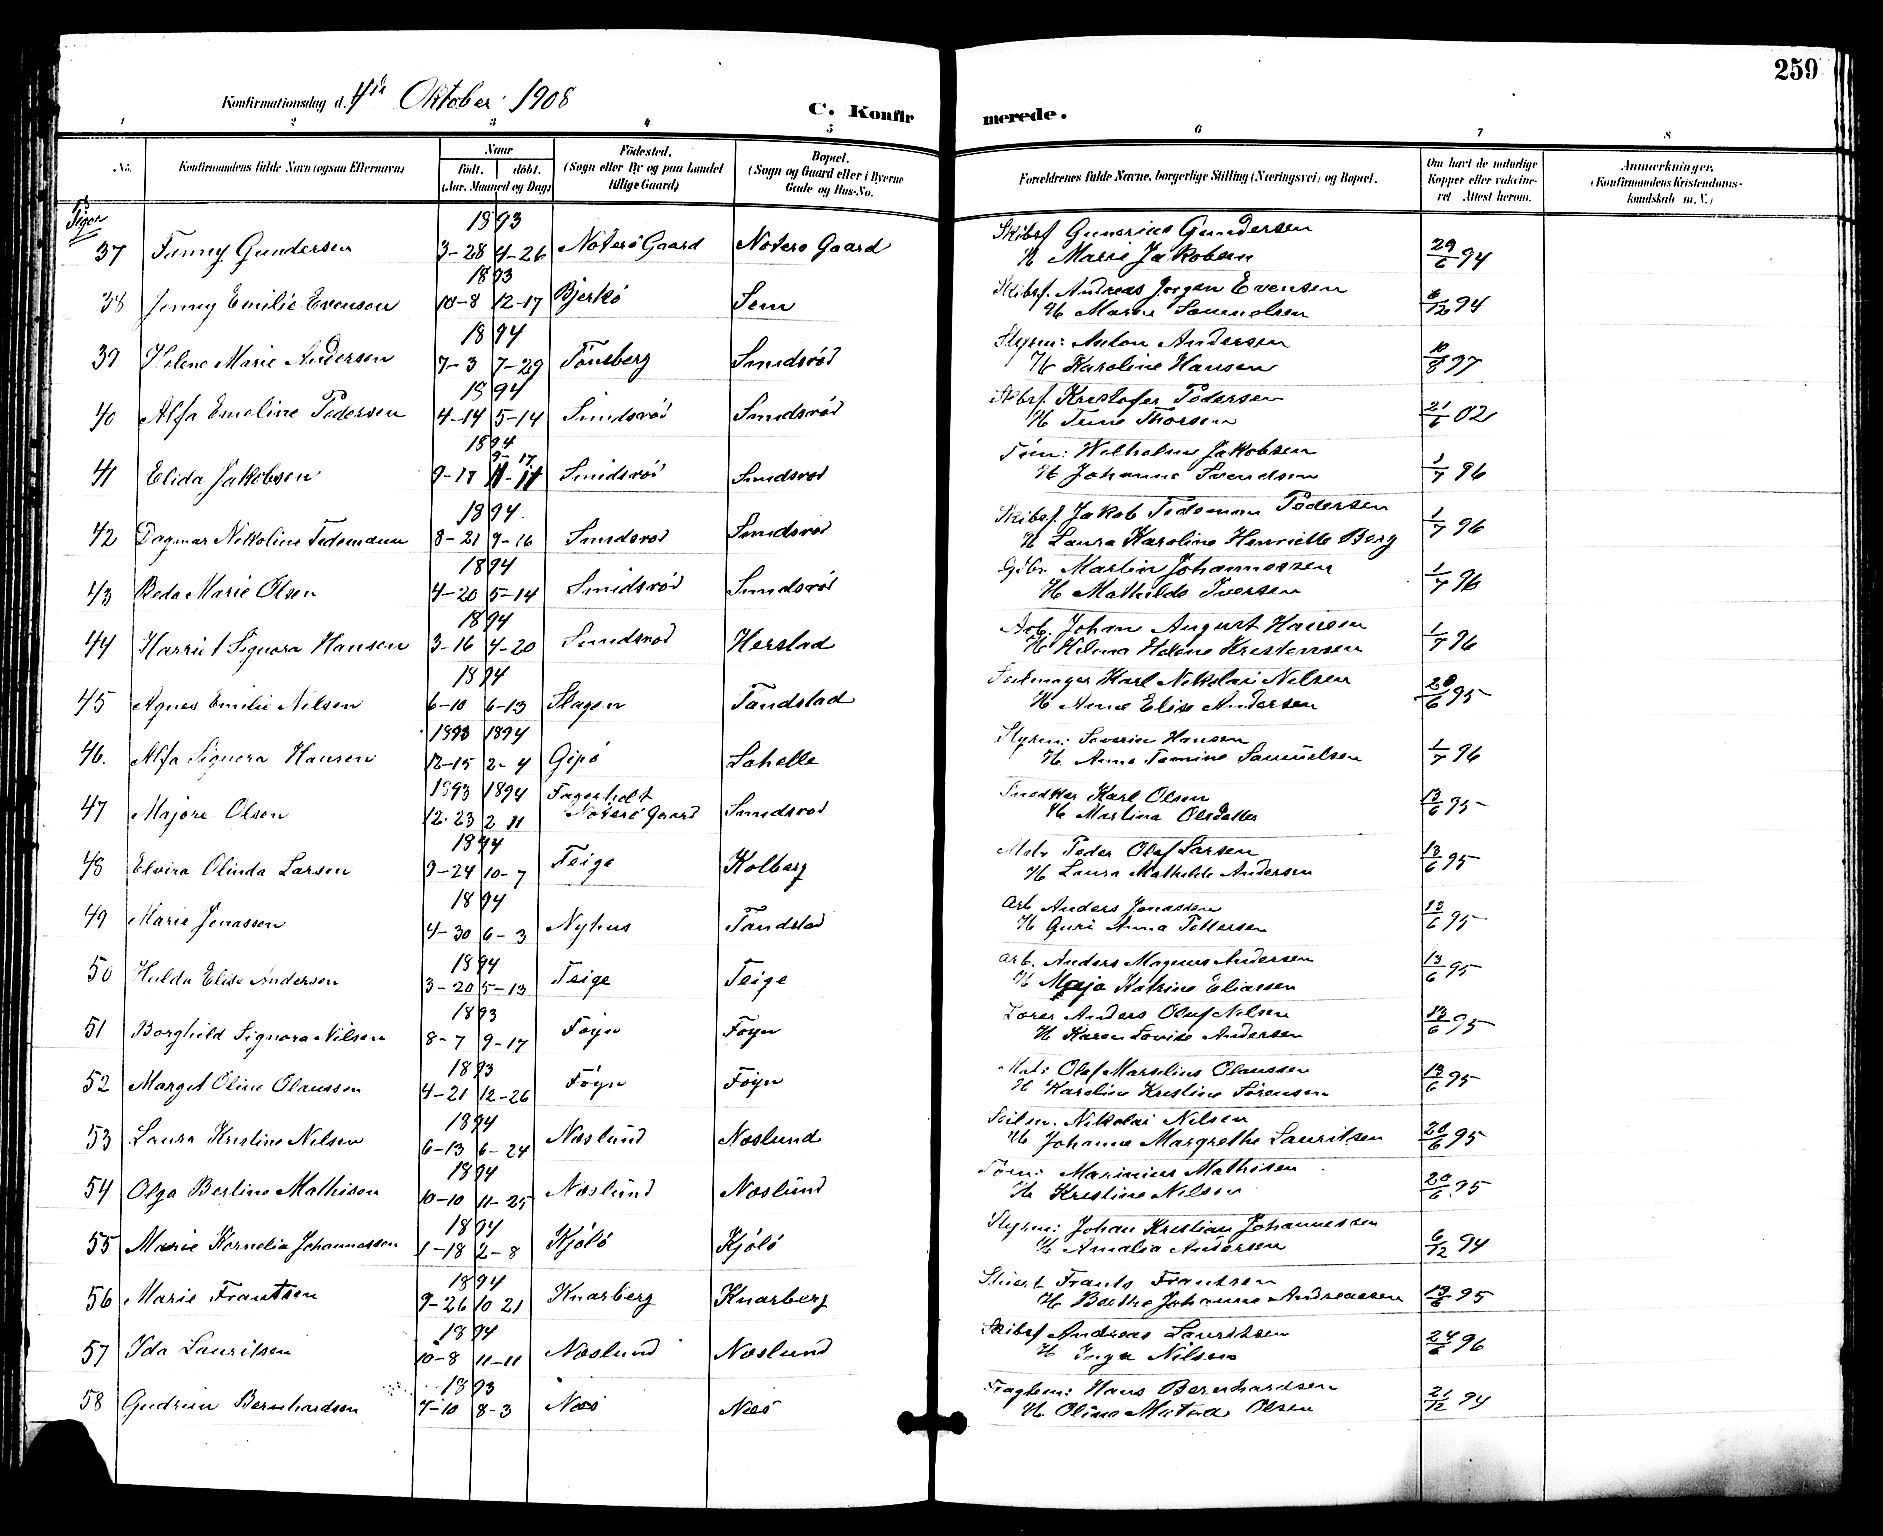 259
Konfirmationsdag d. 4de Oktober 1908
C. Konfirmerede.
1 2 3 4 5 6 7 8
No. Konfirmandens fulde Navn (ogsaa Efternavn) Naar Født. døbt. (Aar. Maaned og Dag) Fødested. (Sogn eller By og paa Landet tillige Gaard) Bopæl. (Sogn og Gaard eller i Byerne Gade og Hus-No. Forældrenes fulde Navne, borgerlige Stilling (Næringsvei) og Bopæl. Om havt de naturlige Kopper eller vaccineret Attest herom. Anmærkninger. (Konfirmandens Kristendomskundskab m. V.)
Piger
37 Fanny Gundersen 1893 3-28 4-26 Nøterø Gaard Nøterø Gaard Skibsf Gunerius Gundersen
H Marie Jakobsen 29/6 94
38 Jenny Emilie Evensen 1893 10-8 12-17 Bjerkø Sem Skibsf. Andreas Jørgen Evensen
H Maren Samuelsen 6/12 94
39 Helene Marie Andersen 1894 7-3 7-29 Tønsberg Smidsrød Styrm: Anton Andersen
H Karoline Hansen 10/8 97
40 Alfa Emeline Pedersen 1894 4-14 5-14 Smidsrød Smidsrød Skibsf. Kristofer Pedersen
H Tine Thorsen 21/6 02
41 Elida Jakobsen 1894 9-17 9-17 11-11 Smidsrød Smidsrød Tøm: Wilhelm Jakobsen
H Johanne Svendsen 1/7 96
42 Dagmar Nikoline Tidemann 1894. 8-21 9-16 Smidsrød Smidsrød Skibsf. Jakob Tidemann Pedersen
H Laura Karoline Henriette Berg 1/7 96
43 Beda Marie Olsen 1894 4-20 5-14 Smidsrød Smidsrød Gdbr. Martin Johannessen
H Mathilde Iversen 1/7 96
44 Harriet Signora Hansen 1894 3-16 4-20 Smidsrød Herstad Arb. Johan August Hansen
H Hilma Helene Kristensen 1/7 96
45 Agnes Emilie Nilsen 1894 6-10 6-13 Slagen Tandstad Seilmager Karl Nikolai Nilsen
H Anne Elise Andersen 20/6 95
46. Alfa Signora Hansen 1893 1894 12-15 2-4 Gipø Lahelle Styrm: Severin Hansen
H Anne Tomine Samuelsen 1/7 96
47 Majore Olsen 1893 1894 12-23 2 11 Fagerholt
Nøterø Gaard Smidsrød Snedker Karl Olsen
H Martina Olsdatter 13/6 95
48 Elvira Olinda Larsen 1894 9-24 10-7 Teige Kolberg Matr Peder Olaf Larsen
H Laura Mathilde Andersen 13/6 95
49 Marie Jonassen 1894 4-30 6-3 Nyhus Tandstad Arb Anders Jonassen
H Guri Anna Pettersen 13/6 95
50 Hulda Elise Andersen 1894 3-20 5-13 Teige Teige Arb. Anders Magnus Andersen
H Maja Katrine Eliassen 13/6 95
51 Borghild Signora Nilsen 1893 8-7 9-17 Føyn Føyn Anders Oluf Nilsen
H Karen Lovise Andersen 13/6 95
52 Margit Oline Olaussen 1893 4-21 12-26 Føyn Føyn Mat: Olaf Marselius Olaussen
H Karoline Kristine Sørensen 13/6 95
53 Laura Kristine Nilsen 1894 6-13 6-24 Næslund Næslund Seilm. Nikolai Nilsen
H Johanne Margrethe Lauritsen 20/6 95
54 Olga Bertine Mathisen 1894 10-10 11-25 Næslund Næslund Tøm: Marinius Mathisen
H Kristine Nilsen 20/6 95
55 Marie Kornelia Johannessen 1894 1-18 2-8 Kjølø Kjølø Styrm: Johan Kristian Johannessen
H Amalia Andersen 6/12 94
56 Marie Frantsen 1894 9-26 10 21 Knarberg Knarberg Stuert Frants Frantsen
H Berthe Johanne Andreassen 13/6 95
57 Ida Lauritsen 1894 10-8 11-11 Næslund Næslund Skibsf Andreas Lauritsen
H Inga Nilsen 24/6 96
58 Gudrun Bernhardsen 1893 7-10 8-3 Næs Næs Fragtem: Hans Bernhardsen
H Oline Olsen 21/12 94